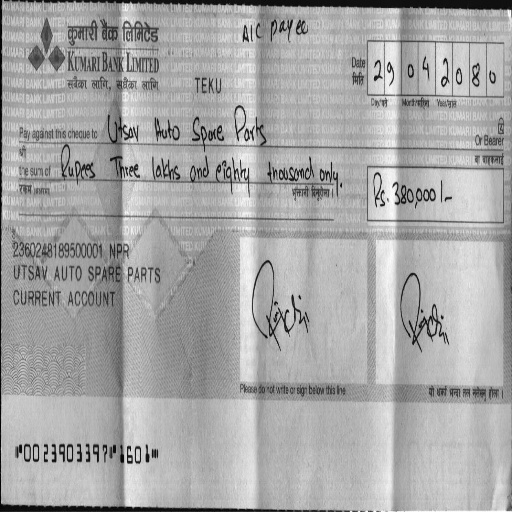 कुमारी बैंक लिमिटेड
KUMARI BANK LIMITED
A/C payee
TEKU
Date मिति 29 04 2080
Day/गते Month/महिना Year/साल
Pay against this cheque to Utsav Auto Spare Parts
Or Bearer
the sum of Rupees Three lakhs and eighty thousand only.
Rs. 380,000/-
2360248189500001 NPR
UTSAV AUTO SPARE PARTS
CURRENT ACCOUNT
Please do not write or sign below this line
"00239033971"1601"